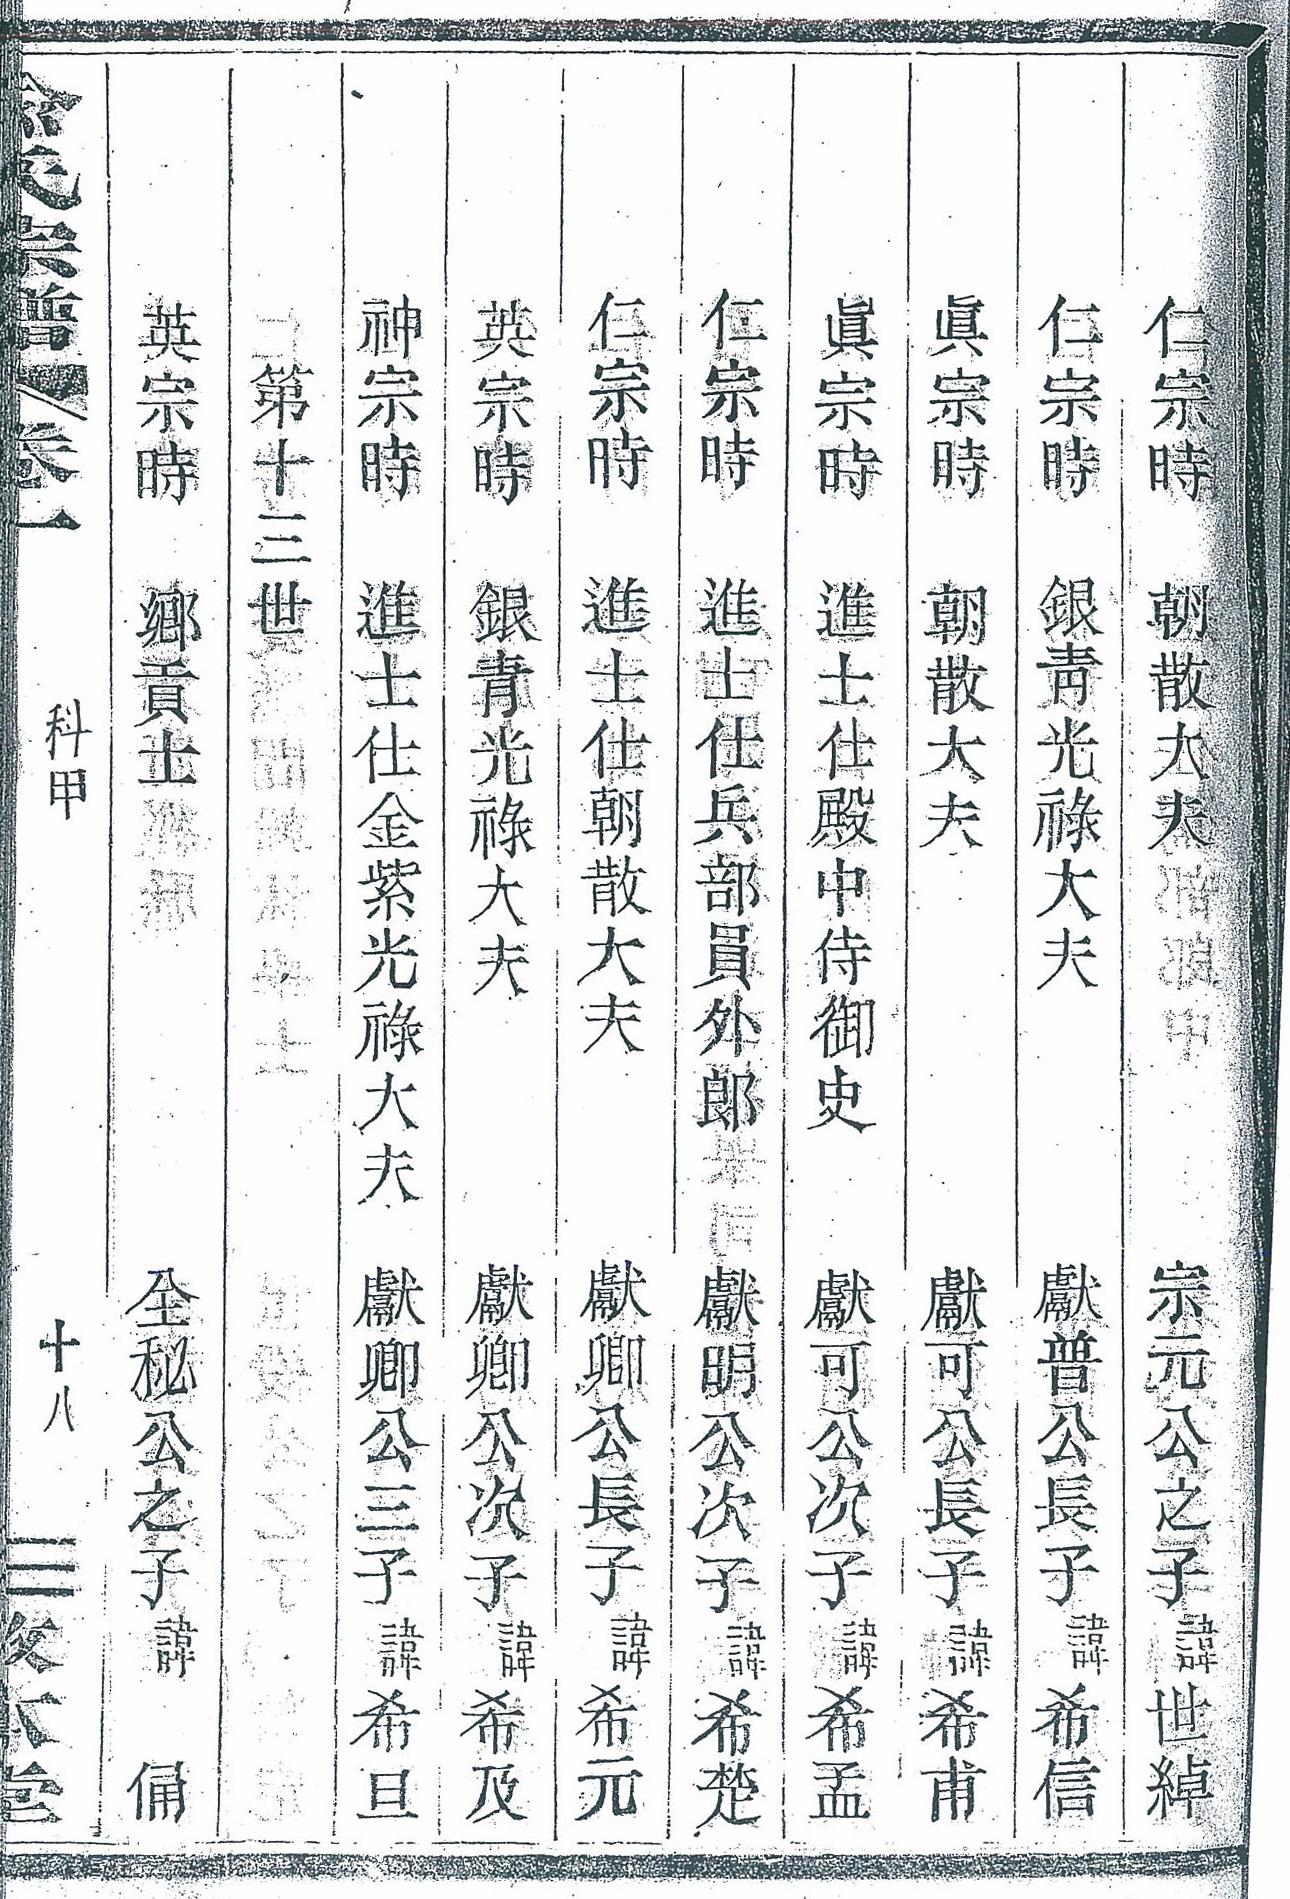 仁宗時 朝散大夫 宗元公之子諱世綽
仁宗時 銀青光祿大夫 獻普公長子諱希信
眞宗時 朝散大夫 獻可公長子諱希甫
眞宗時 進士仕殿中侍御史 獻可公次子諱希孟
仁宗時 進士仕兵部員外郎 獻明公次子諱希楚
仁宗時 進士仕朝散大夫 獻卿公長子諱希元
英宗時 銀青光祿大夫 獻卿公次子諱希及
神宗時 進士仕金紫光祿大夫 獻卿公三子諱希旦
第十三世
英宗時 鄉貢士 全秘公之子諱 俑
氏宗譜 卷一 科甲 十八 本堂